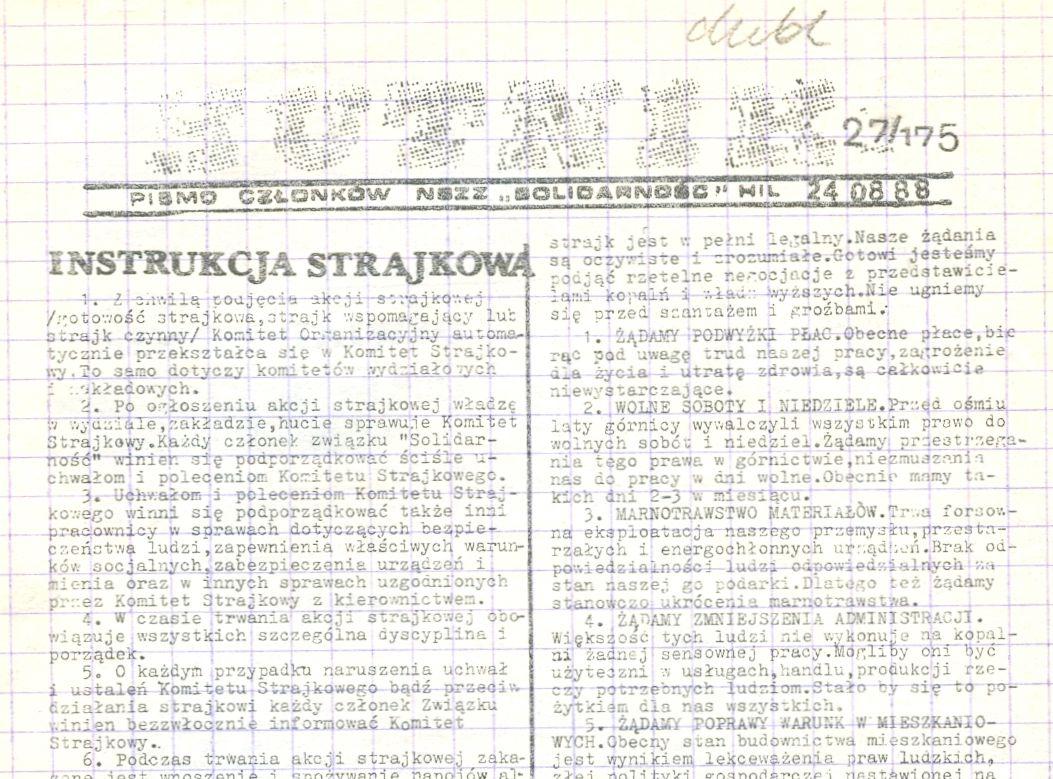 dubl
HUTNIK 27/175
PISMO CZŁONKÓW NSZZ „SOLIDARNOŚĆ" HIL 24 08 88
INSTRUKCJA STRAJKOWA
1. Z chwilą podjęcia akcji strajkowej
/gotowość strajkowa,strajk wspomagający lub
strajk czynny/ Komitet Organizacyjny automa-
tycznie przekształca się w Komitet Strajko-
wy.To samo dotyczy komitetów wydziałowych
i zakładowych.
2. Po ogłoszeniu akcji strajkowej władzę
w wydziale,zakładzie,hucie sprawuje Komitet
Strajkowy.Każdy członek związku "Solidar-
ność" winien się podporządkować ściśle u-
chwałom i poleceniom Komitetu Strajkowego.
3. Uchwałom i poleceniom Komitetu Straj-
kowego winni się podporządkować także inni
pracownicy w sprawach dotyczących bezpie-
czeństwa ludzi,zapewnienia właściwych warun-
ków socjalnych,zabezpieczenia urządzeń i
mienia oraz w innych sprawach uzgodnionych
przez Komitet Strajkowy z kierownictwem.
4. W czasie trwania akcji strajkowej obo-
wiązuje wszystkich szczególna dyscyplina i
porządek.
5. O każdym przypadku naruszenia uchwał
i ustaleń Komitetu Strajkowego bądź przeciw
działania strajkowi każdy członek Związku
winien bezzwłocznie informować Komitet
Strajkowy.
6. Podczas trwania akcji strajkowej zaka-
zane jest wnoszenie i spożywanie napojów al-
strajk jest w pełni legalny.Nasze żądania
są oczywiste i zrozumiałe.Gotowi jesteśmy
podjąć rzetelne negocjacje z przedstawicie-
lami kopalń i władz wyższych.Nie ugniemy
się przed szantażem i groźbami.
1. ŻĄDAMY PODWYŻKI PŁAC.Obecne płace,bio
rąc pod uwagę trud naszej pracy,zagrożenie
dla życia i utratę zdrowia,są całkowicie
niewystarczające.
2. WOLNE SOBOTY I NIEDZIELE.Przed ośmiu
laty górnicy wywalczyli wszystkim prawo do
wolnych sobót i niedziel.Żądamy przestrzega-
nia tego prawa w górnictwie,niezmuszania
nas do pracy w dni wolne.Obecnie mamy ta-
kich dni 2-3 w miesiącu.
3. MARNOTRAWSTWO MATERIAŁÓW.Trwa forsow-
na eksploatacja naszego przemysłu,przesta-
rzałych i energochłonnych urządzeń.Brak od-
powiedzialności ludzi odpowiedzialnych za
stan naszej go podarki.Dlatego też żądamy
stanowczo ukrócenia marnotrawstwa.
4. ŻĄDAMY ZMNIEJSZENIA ADMINISTRACJI.
Większość tych ludzi nie wykonuje na kopal-
ni żadnej sensownej pracy.Mogliby oni być
użyteczni w usługach,handlu,produkcji rze-
czy potrzebnych ludziom.Stało by się to po-
żytkiem dla nas wszystkich.
5. ŻĄDAMY POPRAWY WARUNK W MIESZKANIO-
WYCH.Obecny stan budownictwa mieszkaniowego
jest wynikiem lekceważenia praw ludzkich,
złej polityki gospodarczej nastawionej